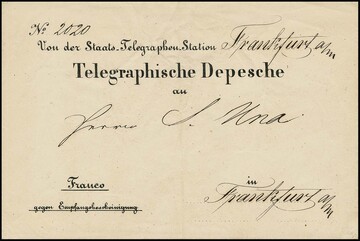 No 2020
Von der Staats-Telegraphen-Station Frankfurt a/m
Telegraphische Depesche
an
Herrn S. Una
Franco
gegen Empfangsbescheinigung
in
Frankfurt a/M